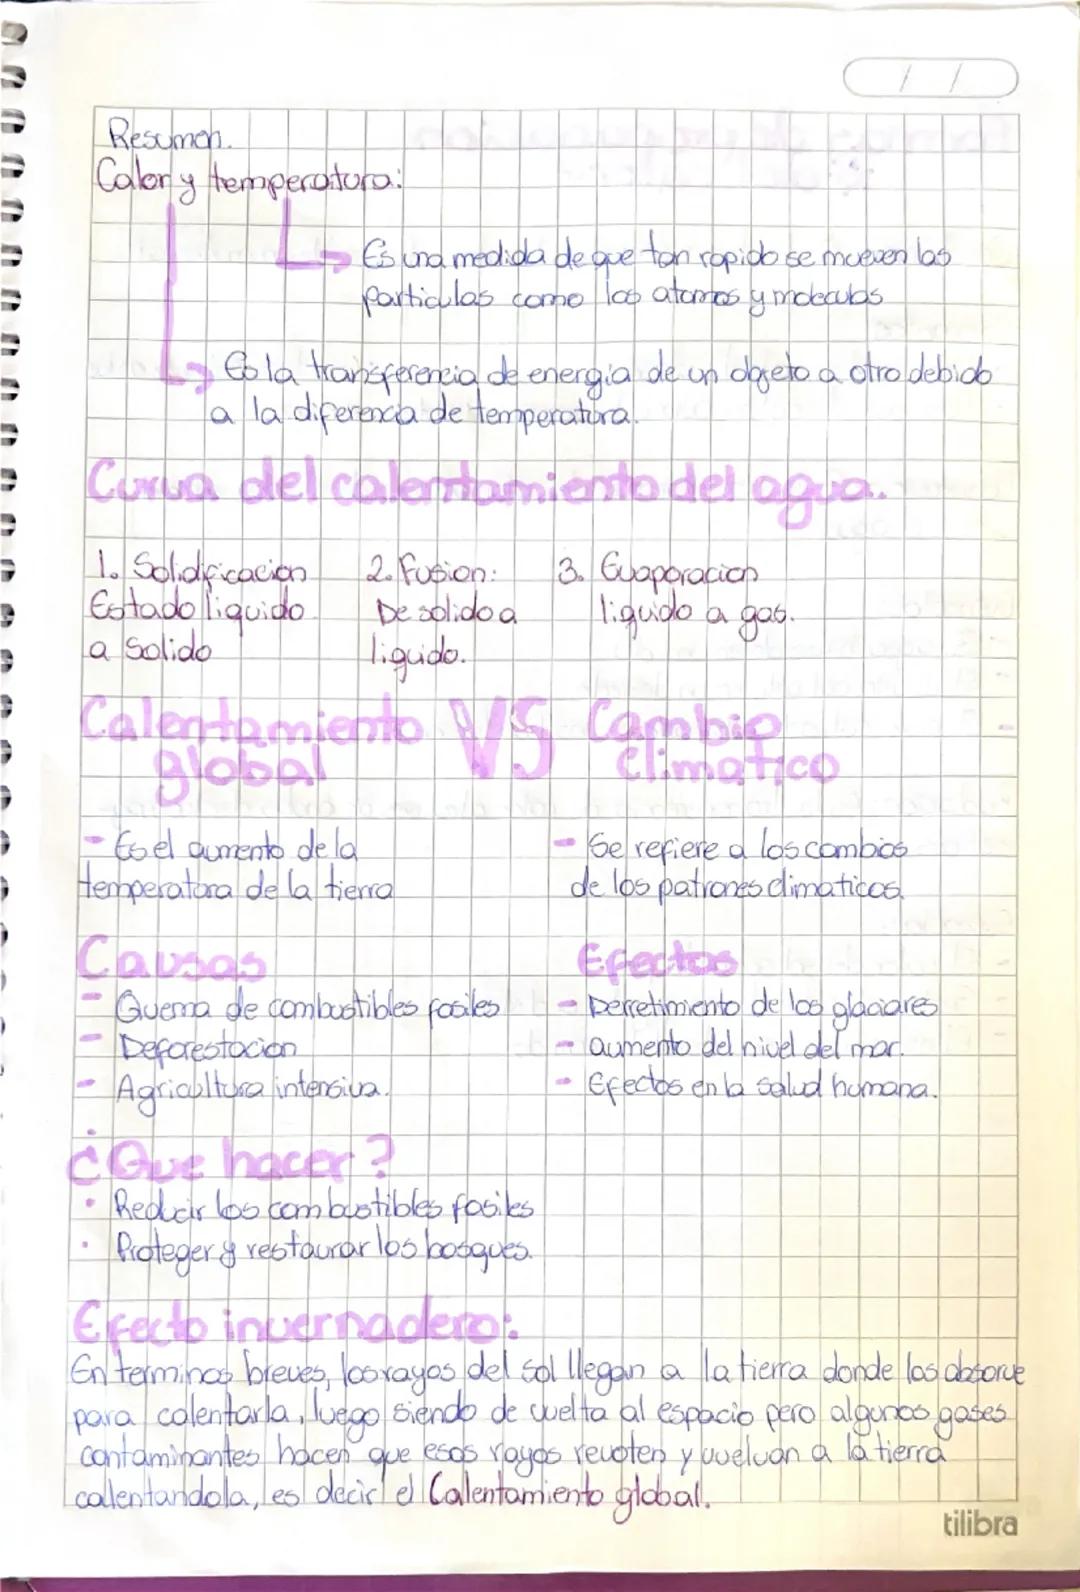 Resumen.
Calor y temperatura:
Es una medida de que tan rapido se mueven las
particulas como los atomos y moleculas
Es la transferencia de energia de un objeto a otro debido
a la diferencia de temperatura.
Curva del calentamiento del agua.
1. Solidificacion
Estado liquido
a Solido
2. Fusion:
De solido a
liquido.
3. Evaporacion
liquido a gas.
Calentamiento
global
VS
Cambio
Climatico
- Es el aumento de la
temperatura de la tierra
- Se refiere a los cambios
de los patrones climaticos.
Causas
- Quema de combustibles fosiles
- Deforestacion
- Agricultura intensiva.
Efectos
- Derretimiento de los glaciares
- aumento del nivel del mar.
- Efectos en la salud humana.
¿Que hacer?
• Reducir los combustibles fosiles
• Proteger y restaurar los bosques.
Efecto invernadero:
En terminos breves, los rayos del sol llegan a la tierra donde los absorve
para calentarla, luego siendo de vuelta al espacio pero algunos gases
contaminantes hacen que esos rayos revoten y vuelvan a la tierra
calentandola, es decir el Calentamiento global.
tilibra